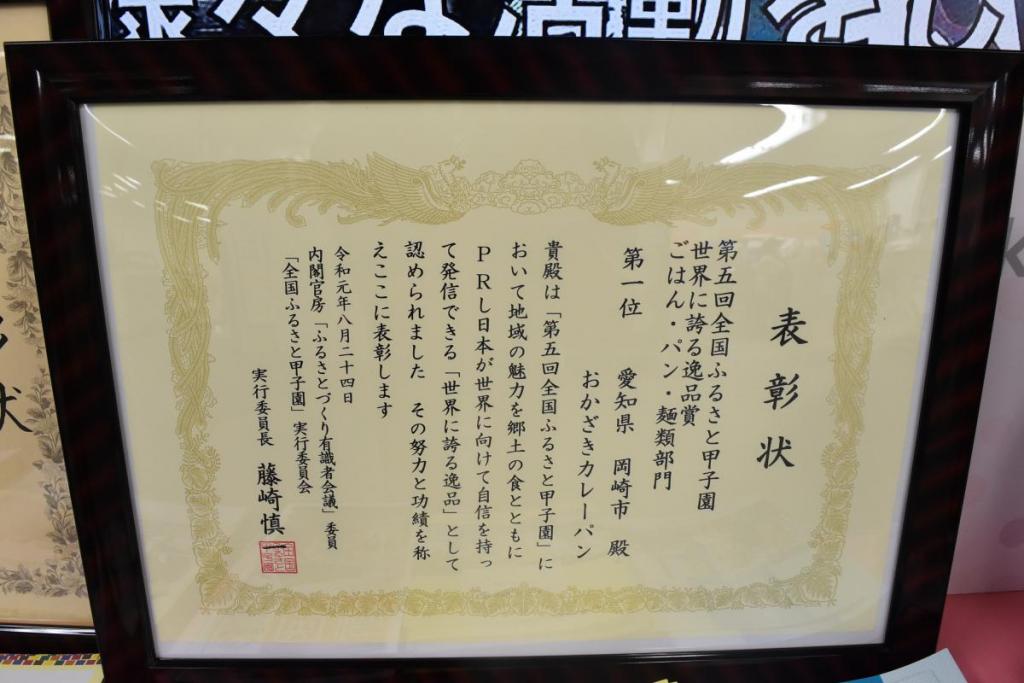 々な活動をし
表彰状
第五回全国ふるさと甲子園
世界に誇る逸品賞
ごはん・パン・麺類部門
第一位 愛知県 岡崎市 殿
おかざきカレーパン
貴殿は「第五回全国ふるさと甲子園」に
おいて地域の魅力を郷土の食とともに
PRし日本が世界に向けて自信を持っ
て発信できる「世界に誇る逸品」として
認められました その努力と功績を称
えここに表彰します
令和元年八月二十四日
内閣官房「ふるさとづくり有識者会議」委員
「全国ふるさと甲子園」実行委員会
実行委員長 藤崎慎一
状